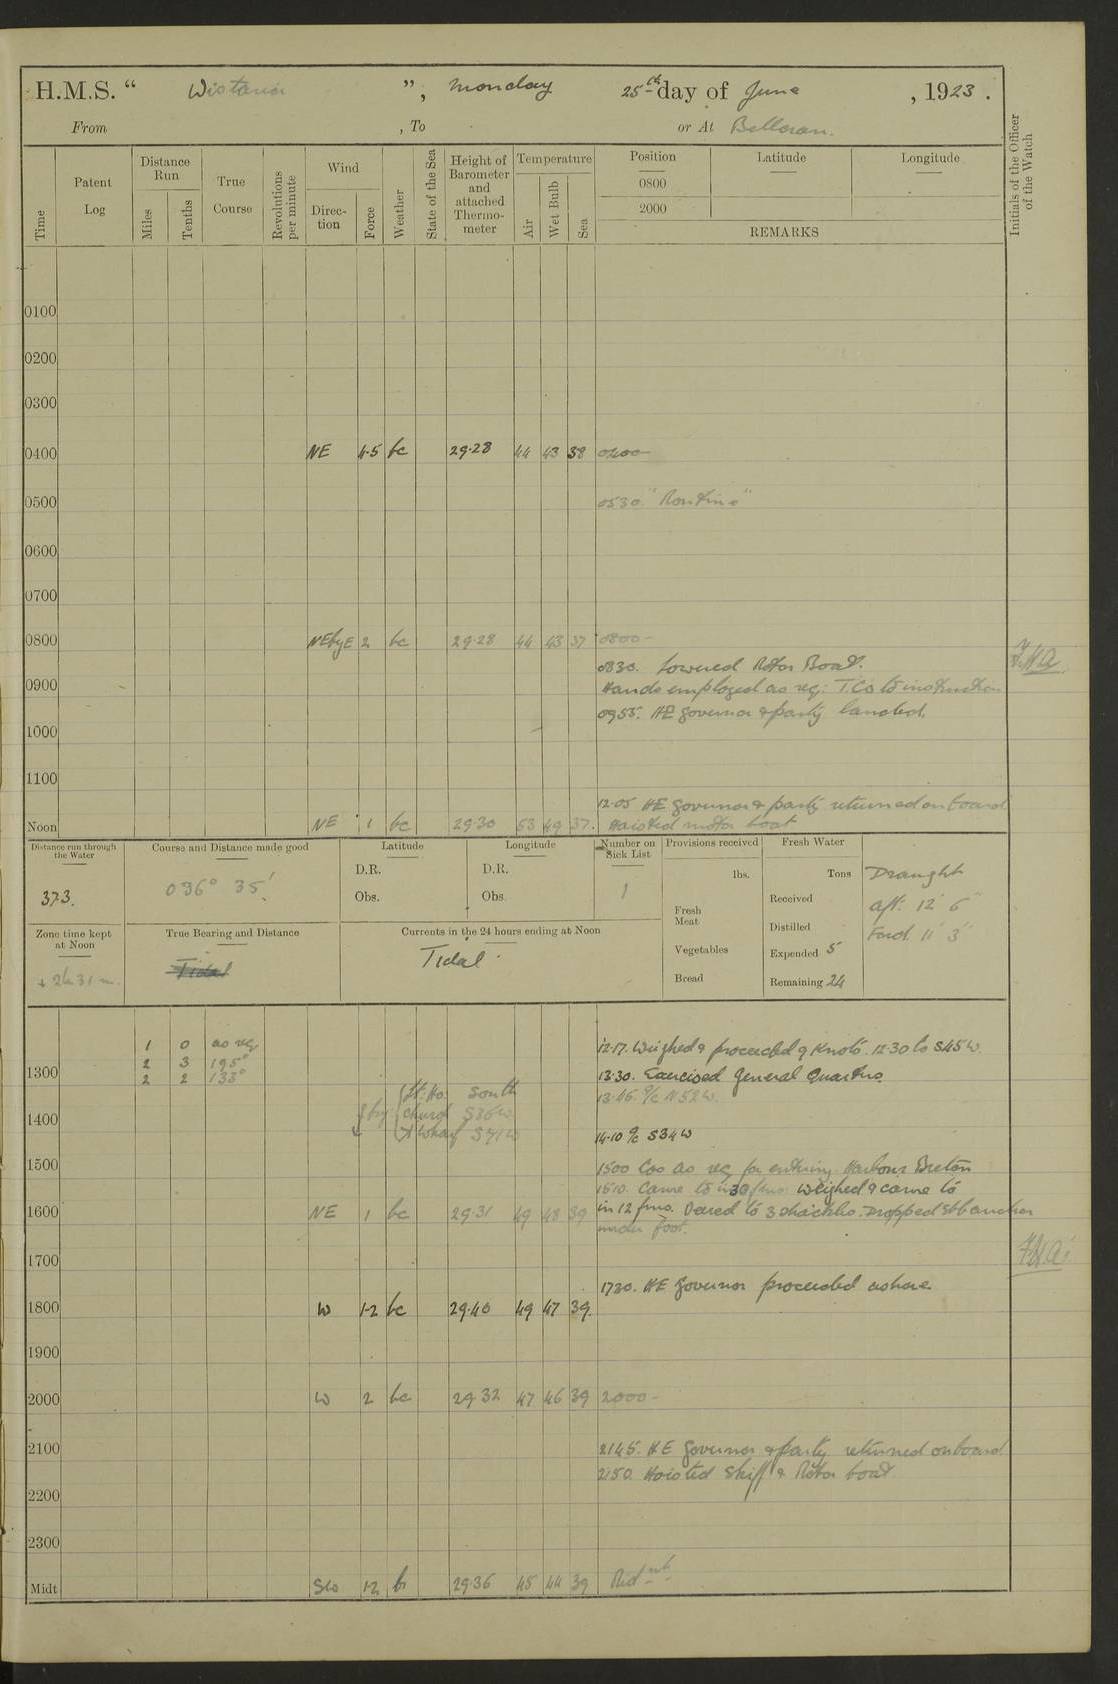 H.M.S. “ Wistaria ” , Monday 25th day of June , 1923 .
From , To or At Belloram.
Time
Patent Log
Distance Run
Miles
Tenths
True Course
Revolutions per minute
Wind
Direc- tion
Force
Weather
State of the Sea
Height of Barometer and attached Thermo- meter
Temperature
Air
Wet Bulb
Sea
Position Latitude Longitude
0800
2000
REMARKS
Initials of the Officer of the Watch
0100
0200
0300
0400 NE 4.5 bc 29.28 44 43 38 0400
0500 0530 "Routine"
0600
0700
0800 NEbyE 2 bc 29.28 44 43 37 0800
0830. Lowered Motor Boat.
0900 Hands employed as req: T.Co to instruction
0955. HE Governor & party landed.
1000
1100
12.05 HE Governor & party returned on board
Noon NE 1 bc 29.30 53 49 37. Hoisted motor boat
Distance run through the Water
373.
Course and Distance made good
036° 35'
Latitude
D.R.
Obs.
Longitude
D.R.
Obs.
Number on Sick List
1
Provisions received
lbs.
Fresh Meat
Vegetables
Bread
Fresh Water
Tons
Received
Distilled
Expended 5
Remaining 24
Draught
aft: 12' 6"
Ford. 11' 3"
Zone time kept at Noon
+ 2h 31m.
True Bearing and Distance
Tidal
Currents in the 24 hours ending at Noon
Tidal.
1 0 as req 12.17. Weighed & proceeded 9 Knots. 12.30 Co S45W.
2 3 195°
1300 2 2 133° 13.30. Exercised General Quarters.
Lt. Ho: South 13.46. a/c N52W.
1400 Church S86W
Wharf S71W 14.10 a/c S34W
1500 1500 Cos as req for entering Harbour Breton
1510. Came to in 30 fms. Weighed & came to
1600 NE 1 bc 29.31 49 48 39 in 12 fms. Veered to 3 shackles. Dropped Stb anchor
under foot.
1700
1730. HE Governor proceeded ashore
1800 W 1-2 bc 29.40 49 47 39.
1900
2000 W 2 bc 29.32 47 46 39 2000
2100 2145. HE Governor & party returned on board
2150. Hoisted Skiff & Motor boat
2200
2300
Midt 1-2 b 29.36 45 44 39 Midnt